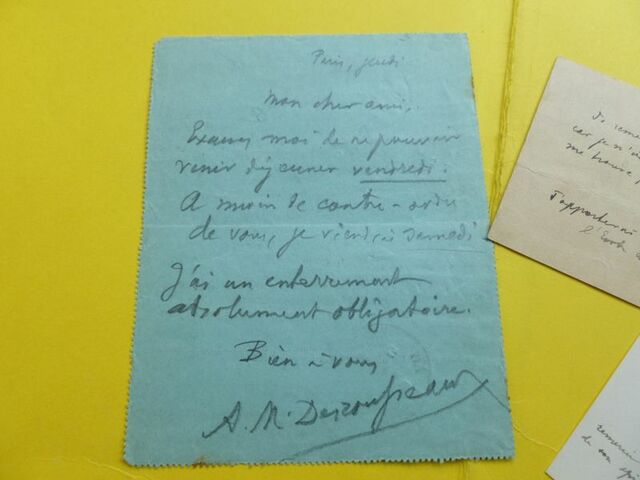 Paris, jeudi
Mon cher ami,
Excusez moi de ne pouvoir
venir déjeuner vendredi.
A moin de contre-ordre
de vous, je viendrai samedi
J'ai un enterrement
absolument obligatoire.
Bien à vous
A. M. Desrousseaux
car je n'ai
me trouve
J'apporterai
l'Ecole
remercie
de son